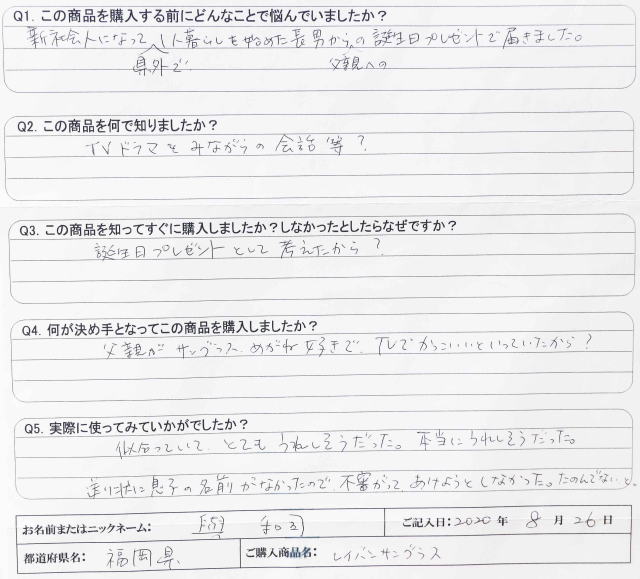 Q1. この商品を購入する前にどんなことで悩んでいましたか？
新社会人になって 1人暮らしを始めた長男からの誕生日プレゼントで届きました。
県外で 父親への
Q2. この商品を何で知りましたか？
TVドラマをみながらの会話等？
Q3. この商品を知ってすぐに購入しましたか？しなかったとしたらなぜですか？
誕生日プレゼントとして考えたから？
Q4. 何が決め手となってこの商品を購入しましたか？
父親がサングラス、めがね好きで、TVでかっこいいといっていたから？
Q5. 実際に使ってみていかがでしたか？
似合っていて、とてもうれしそうだった。本当にうれしそうだった。
送り状に息子の名前がなかったので、不審がって、あけようとしなかった。たのんでないと。
お名前またはニックネーム：
ご記入日：2020 年 8 月 26 日
都道府県名： 福岡県
ご購入商品名： レイバンサングラス